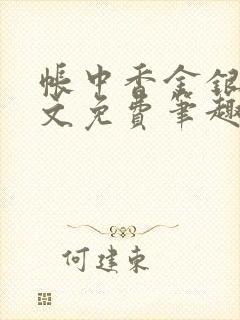 帐中香金银
文免费笔趣
何建东